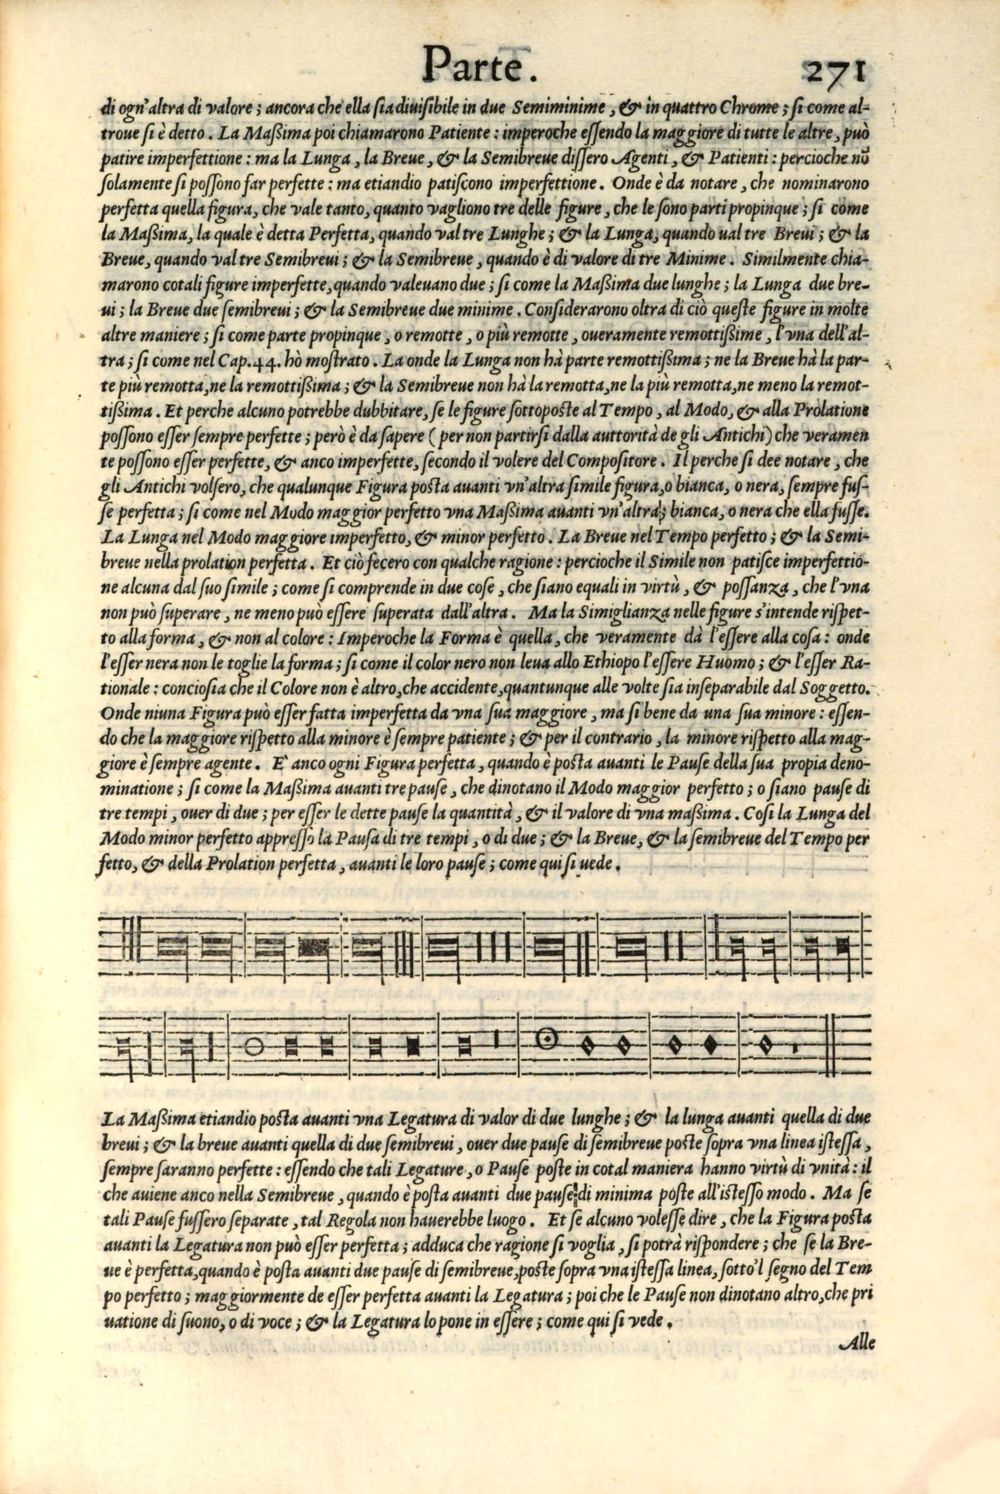 Parte. 271
di ogn'altra di valore; ancora che ella sia diuisibile in due Semiminime, & in quattro Chrome; si come al-
troue si è detto. La Maßima poi chiamarono Patiente: imperoche essendo la maggiore di tutte le altre, può
patire imperfettione: ma la Lunga, la Breue, & la Semibreue dissero Agenti, & Patienti: percioche nō
solamente si possono far perfette: ma etiandio patiscono imperfettione. Onde è da notare, che nominarono
perfetta quella figura, che vale tanto, quanto vagliono tre delle figure, che le sono parti propinque; si come
la Maßima, la quale è detta Perfetta, quando val tre Lunghe; & la Lunga, quando ual tre Breui; & la
Breue, quando val tre Semibreui; & la Semibreue, quando è di valore di tre Minime. Similmente chia-
marono cotali figure imperfette, quando valeuano due; si come la Maßima due lunghe; la Lunga due bre-
ui; la Breue due semibreui; & la Semibreue due minime. Considerarono oltra di ciò queste figure in molte
altre maniere; si come parte propinque, o remotte, o più remotte, oueramente remottißime, l'vna dell'al-
tra; si come nel Cap. 44. hò mostrato. La onde la Lunga non hà parte remottißima; ne la Breue hà la par-
te più remotta, ne la remottißima; & la Semibreue non hà la remotta, ne la più remotta, ne meno la remot-
tißima. Et perche alcuno potrebbe dubbitare, se le figure sottoposte al Tempo, al Modo, & alla Prolatione
possono esser sempre perfette; però è da sapere (per non partirsi dalla auttorità de gli Antichi) che veramen
te possono esser perfette, & anco imperfette, secondo il volere del Compositore. Il perche si dee notare, che
gli Antichi volsero, che qualunque Figura posta auanti vn'altra simile figura, o bianca, o nera, sempre fus-
se perfetta; si come nel Modo maggior perfetto vna Maßima auanti vn'altra; bianca, o nera che ella fusse.
La Lunga nel Modo maggiore imperfetto, & minor perfetto. La Breue nel Tempo perfetto; & la Semi-
breue nella prolation perfetta. Et ciò fecero con qualche ragione: percioche il Simile non patisce imperfettio-
ne alcuna dal suo simile; come si comprende in due cose, che siano equali in virtù, & possanza, che l'vna
non può superare, ne meno può essere superata dall'altra. Ma la Simiglianza nelle figure s'intende rispet-
to alla forma, & non al colore: Imperoche la Forma è quella, che veramente dà l'essere alla cosa: onde
l'esser nera non le toglie la forma; si come il color nero non leua allo Ethiopo l'essere Huomo; & l'esser Ra-
tionale: conciosia che il Colore non è altro, che accidente, quantunque alle volte sia inseparabile dal Soggetto.
Onde niuna Figura può esser fatta imperfetta da vna sua maggiore, ma si bene da una sua minore: essen-
do che la maggiore rispetto alla minore è sempre patiente; & per il contrario, la minore rispetto alla mag-
giore è sempre agente. E' anco ogni Figura perfetta, quando è posta auanti le Pause della sua propia deno-
minatione; si come la Maßima auanti tre pause, che dinotano il Modo maggior perfetto; o siano pause di
tre tempi, ouer di due; per esser le dette pause la quantità, & il valore di vna maßima. Cosi la Lunga del
Modo minor perfetto appresso la Pausa di tre tempi, o di due; & la Breue, & la semibreue del Tempo per
fetto, & della Prolation perfetta, auanti le loro pause; come qui si uede.
La Maßima etiandio posta auanti vna Legatura di valor di due lunghe; & la lunga auanti quella di due
breui; & la breue auanti quella di due semibreui, ouer due pause di semibreue poste sopra vna linea istessa,
sempre saranno perfette: essendo che tali Legature, o Pause poste in cotal maniera hanno virtù di vnità: il
che auiene anco nella Semibreue, quando è posta auanti due pause di minima poste all'istesso modo. Ma se
tali Pause fussero separate, tal Regola non hauerebbe luogo. Et se alcuno volesse dire, che la Figura posta
auanti la Legatura non può esser perfetta; adduca che ragione si voglia, si potrà rispondere; che se la Bre-
ue è perfetta, quando è posta auanti due pause di semibreue, poste sopra vna istessa linea, sotto'l segno del Tem
po perfetto; maggiormente de esser perfetta auanti la Legatura; poi che le Pause non dinotano altro, che pri
uatione di suono, o di voce; & la Legatura lo pone in essere; come qui si vede.
Alle